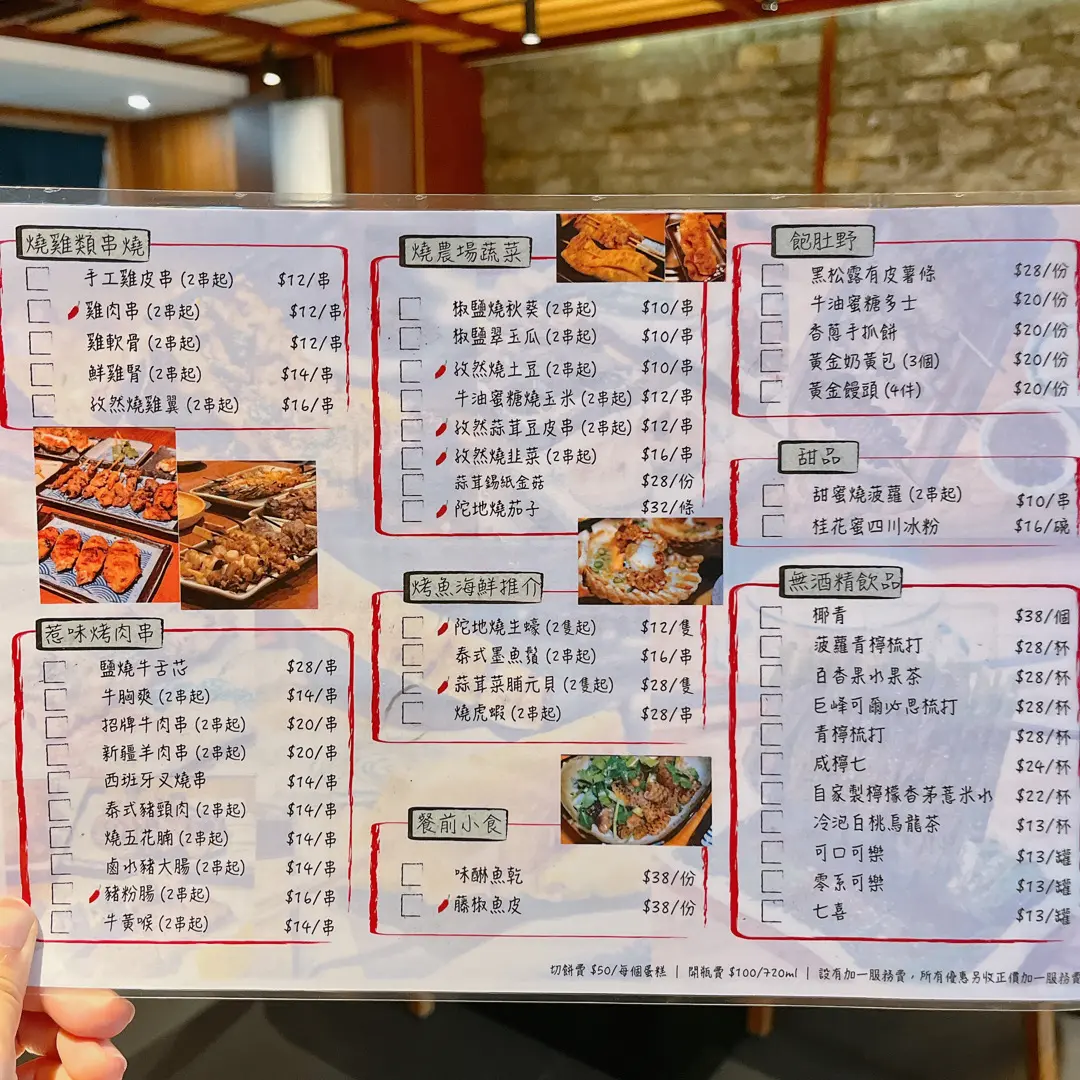 燒雞類串燒
手工雞皮串 (2串起) $12/串
雞肉串 (2串起) $12/串
雞軟骨 (2串起) $12/串
鮮雞腎 (2串起) $14/串
孜然燒雞翼 (2串起) $16/串
惹味烤肉串
鹽燒牛舌芯 $28/串
牛胸爽 (2串起) $14/串
招牌牛肉串 (2串起) $20/串
新疆羊肉串 (2串起) $20/串
西班牙叉燒串 $14/串
泰式豬頸肉 (2串起) $14/串
燒五花腩 (2串起) $14/串
鹵水豬大腸 (2串起) $14/串
豬粉腸 (2串起) $16/串
牛黃喉 (2串起) $14/串
燒農場蔬菜
椒鹽燒秋葵 (2串起) $10/串
椒鹽翠玉瓜 (2串起) $10/串
孜然燒土豆 (2串起) $10/串
牛油蜜糖燒玉米 (2串起) $12/串
孜然蒜茸豆皮串 (2串起) $12/串
孜然燒韭菜 (2串起) $16/串
蒜茸錫紙金菇 $28/份
陀地燒茄子 $32/條
烤魚海鮮推介
陀地燒生蠔 (2隻起) $12/隻
泰式墨魚鬚 (2串起) $16/串
蒜茸菜脯元貝 (2隻起) $28/隻
燒虎蝦 (2串起) $28/串
餐前小食
味醂魚乾 $38/份
藤椒魚皮 $38/份
飽肚野
黑松露有皮薯條 $28/份
牛油蜜糖多士 $20/份
香蔥手抓餅 $20/份
黃金奶黃包 (3個) $20/份
黃金饅頭 (4件) $20/份
甜品
甜蜜燒菠蘿 (2串起) $10/串
桂花蜜四川冰粉 $16/碗
無酒精飲品
椰青 $38/個
菠蘿青檸梳打 $28/杯
百香果水果茶 $28/杯
巨峰可爾必思梳打 $28/杯
青檸梳打 $28/杯
咸檸七 $24/杯
自家製檸檬香茅薏米水 $22/杯
冷泡白桃烏龍茶 $13/杯
可口可樂 $13/罐
零系可樂 $13/罐
七喜 $13/罐
切餅費 $50/每個蛋糕 | 開瓶費 $100/720ml | 設有加一服務費，所有優惠另收正價加一服務費